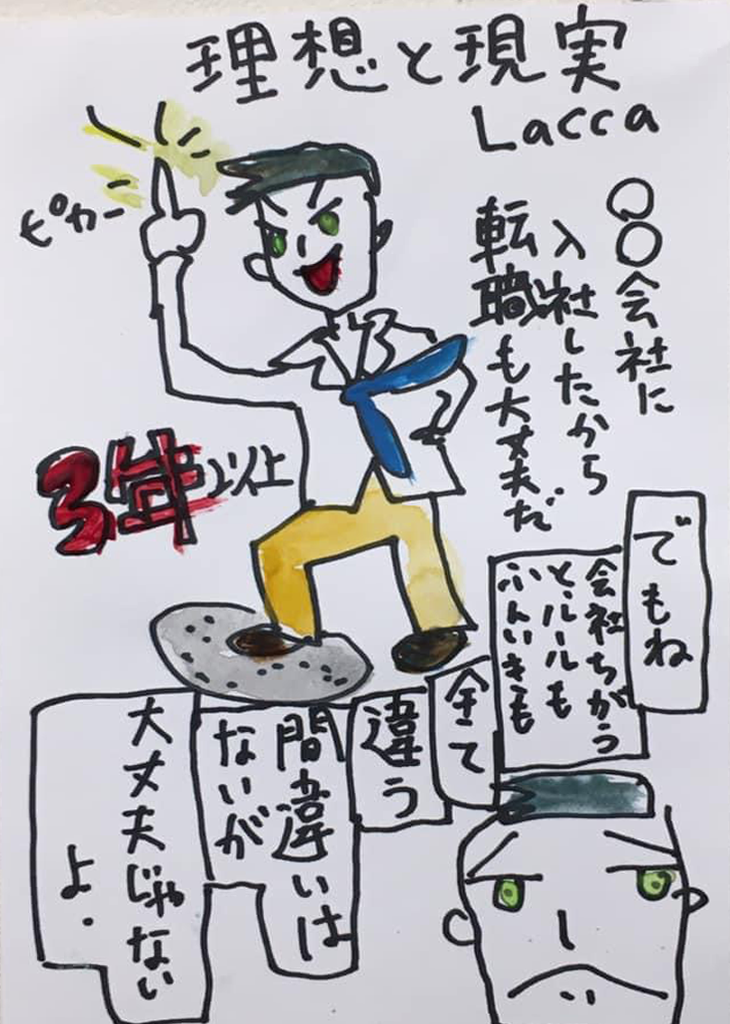 理想と現実
Lacca
ピカー
〇〇会社に
入社したから
転職も大丈夫だ
3年以上
でもね
会社ちがうと、ルールもふんいきも
全て
違う
間違いは
ないが
大丈夫じゃない
よ.